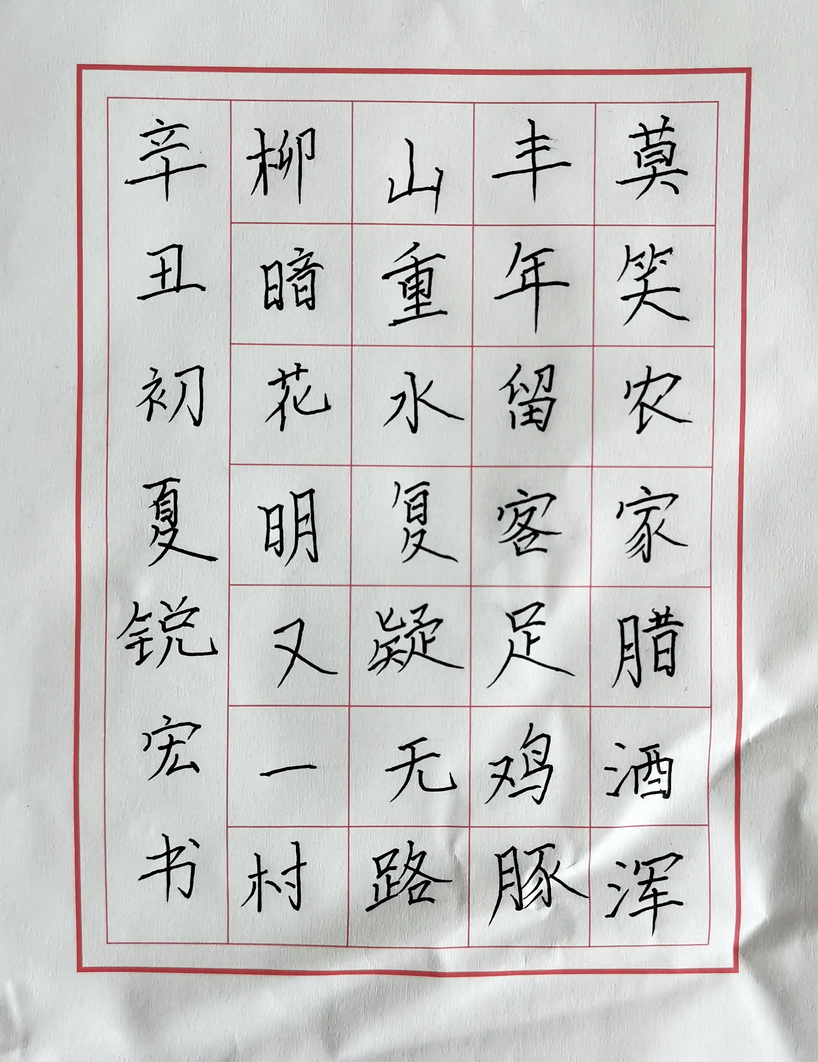 莫笑农家腊酒浑
丰年留客足鸡豚
山重水复疑无路
柳暗花明又一村
辛丑初夏锐宏书